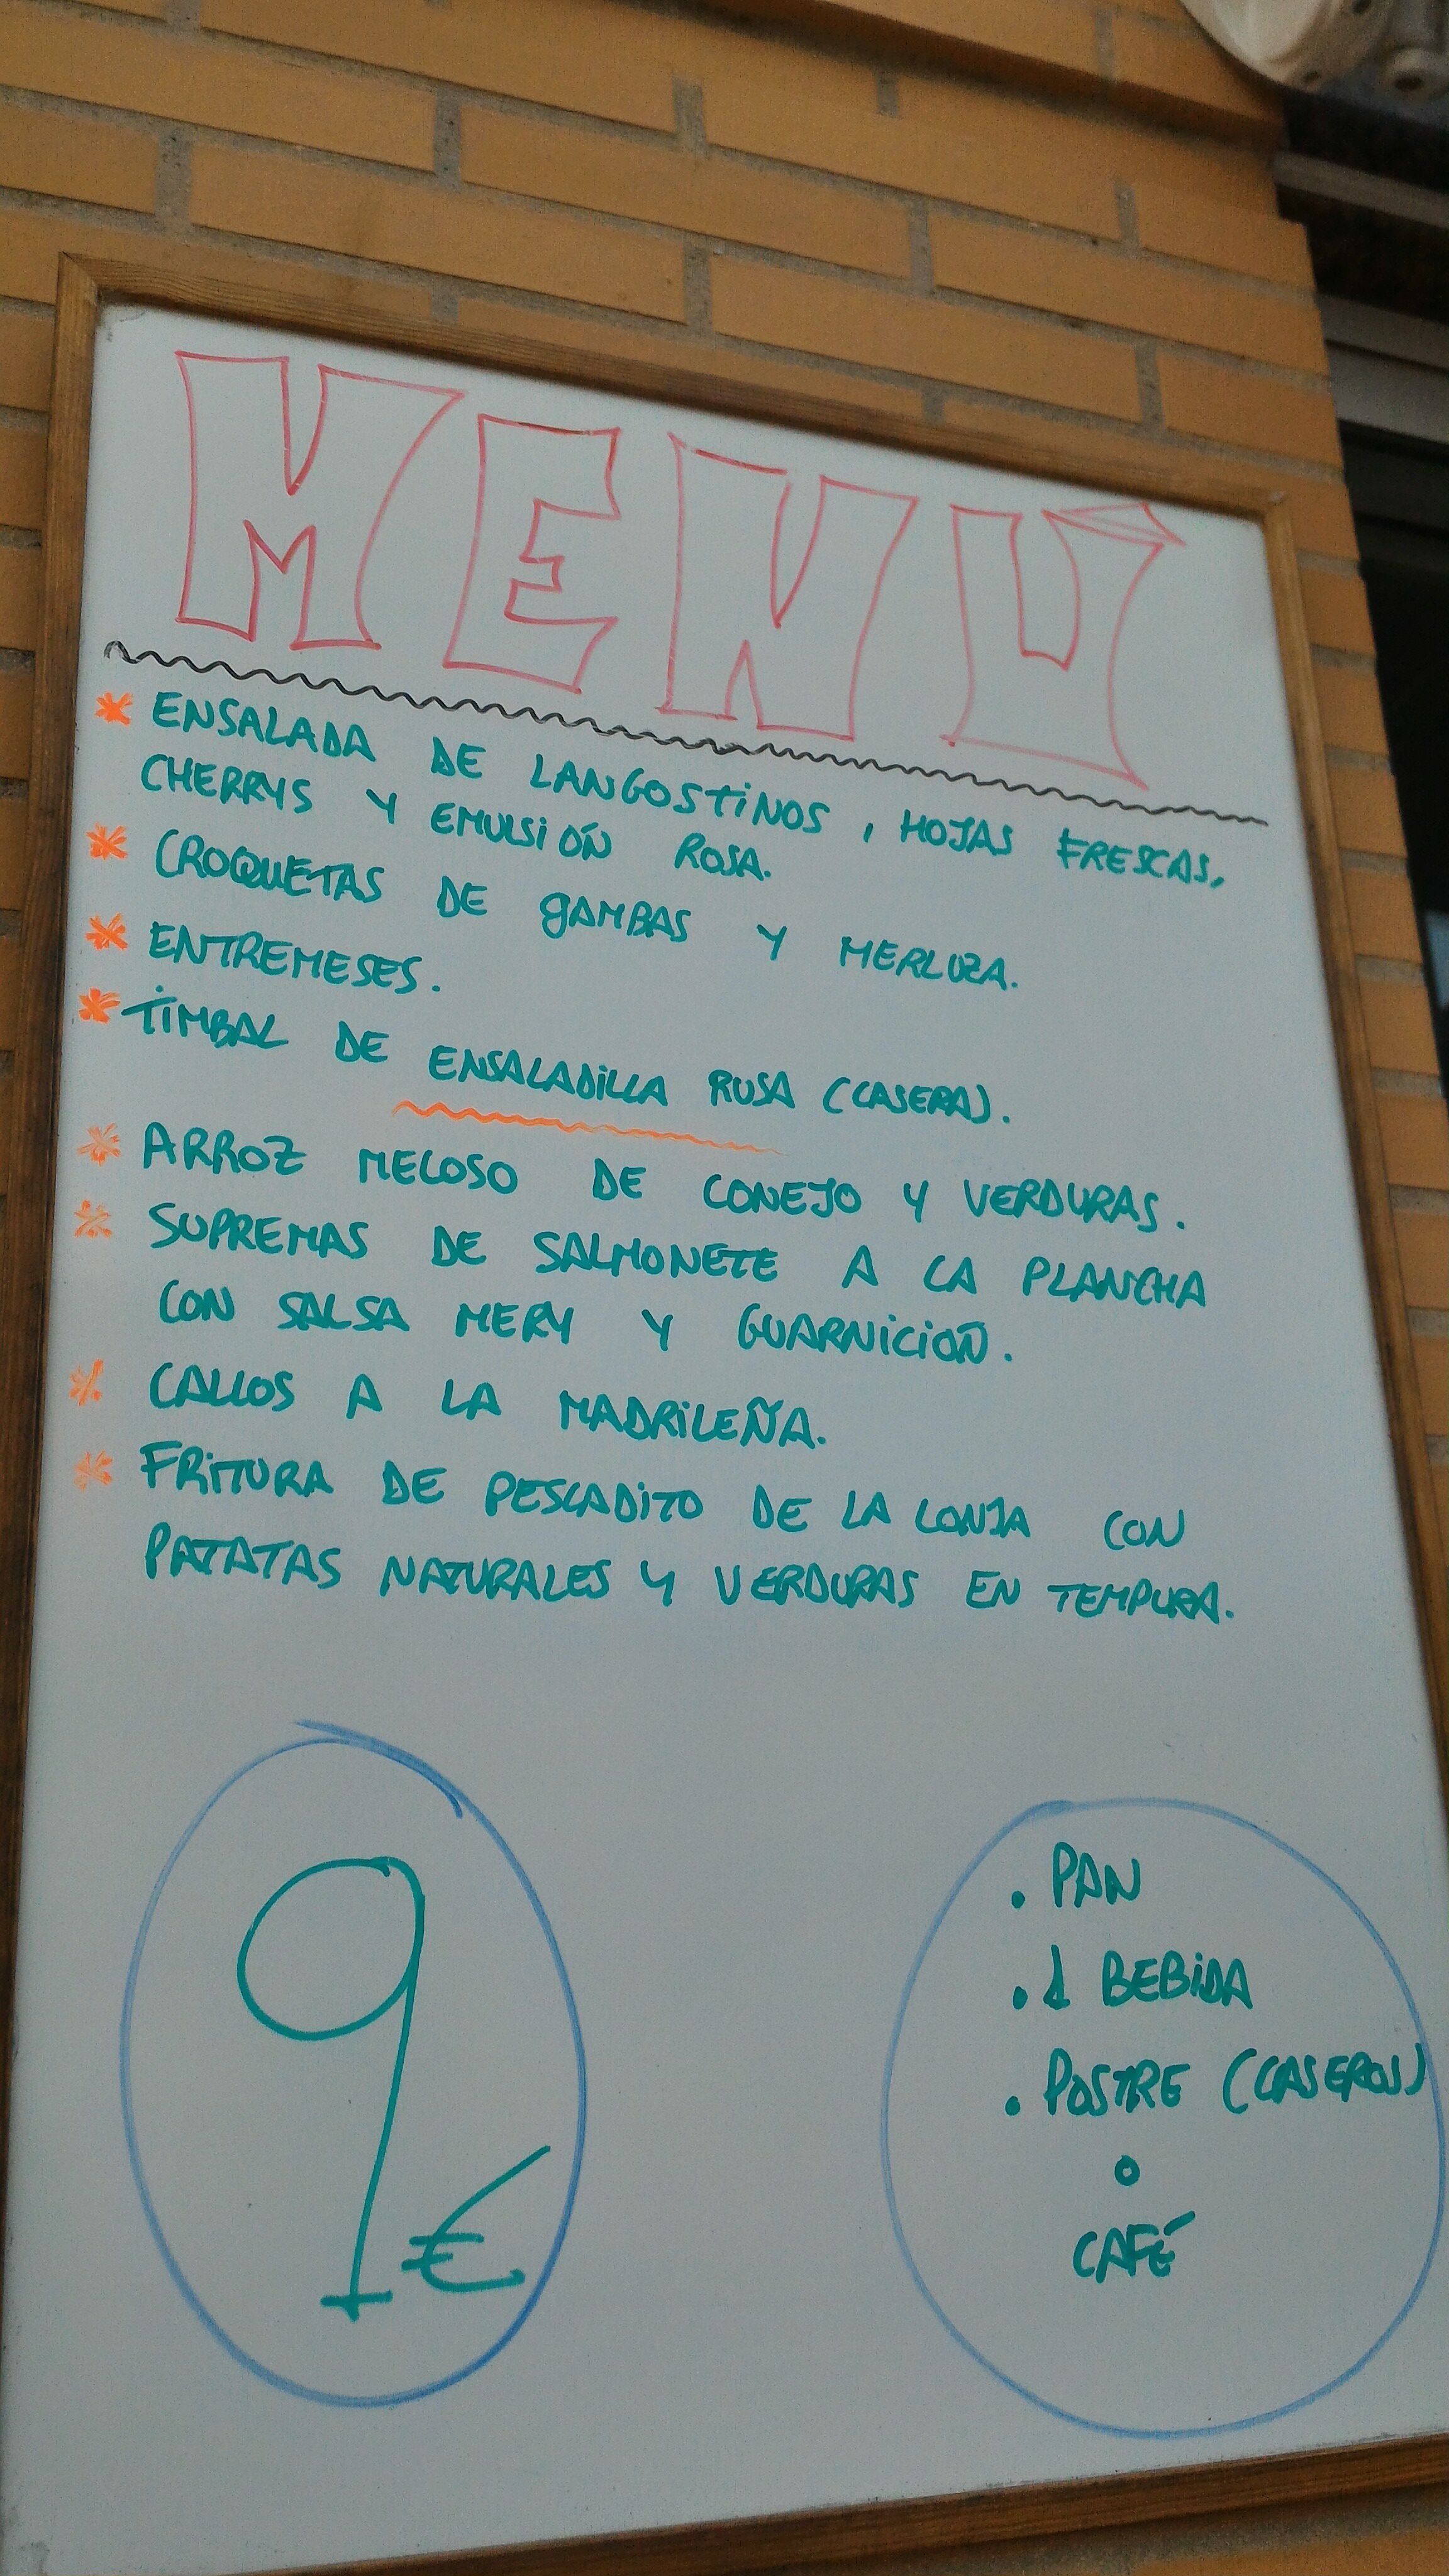 MENÚ
* ENSALADA DE LANGOSTINOS, HOJAS FRESCAS,
CHERRYS Y EMULSIÓN ROSA.
* CROQUETAS DE GAMBAS Y MERLUZA.
* ENTREMESES.
* TIMBAL DE ENSALADILLA RUSA (CASERA).
* ARROZ MELOSO DE CONEJO Y VERDURAS.
* SUPREMAS DE SALMONETE A LA PLANCHA
CON SALSA MERY Y GUARNICIÓN.
* CALLOS A LA MADRILEÑA.
* FRITURA DE PESCADITO DE LA LONJA CON
PATATAS NATURALES Y VERDURAS EN TEMPURA.
9 €
. PAN
. 1 BEBIDA
. POSTRE (CASEROS)
o
CAFÉ